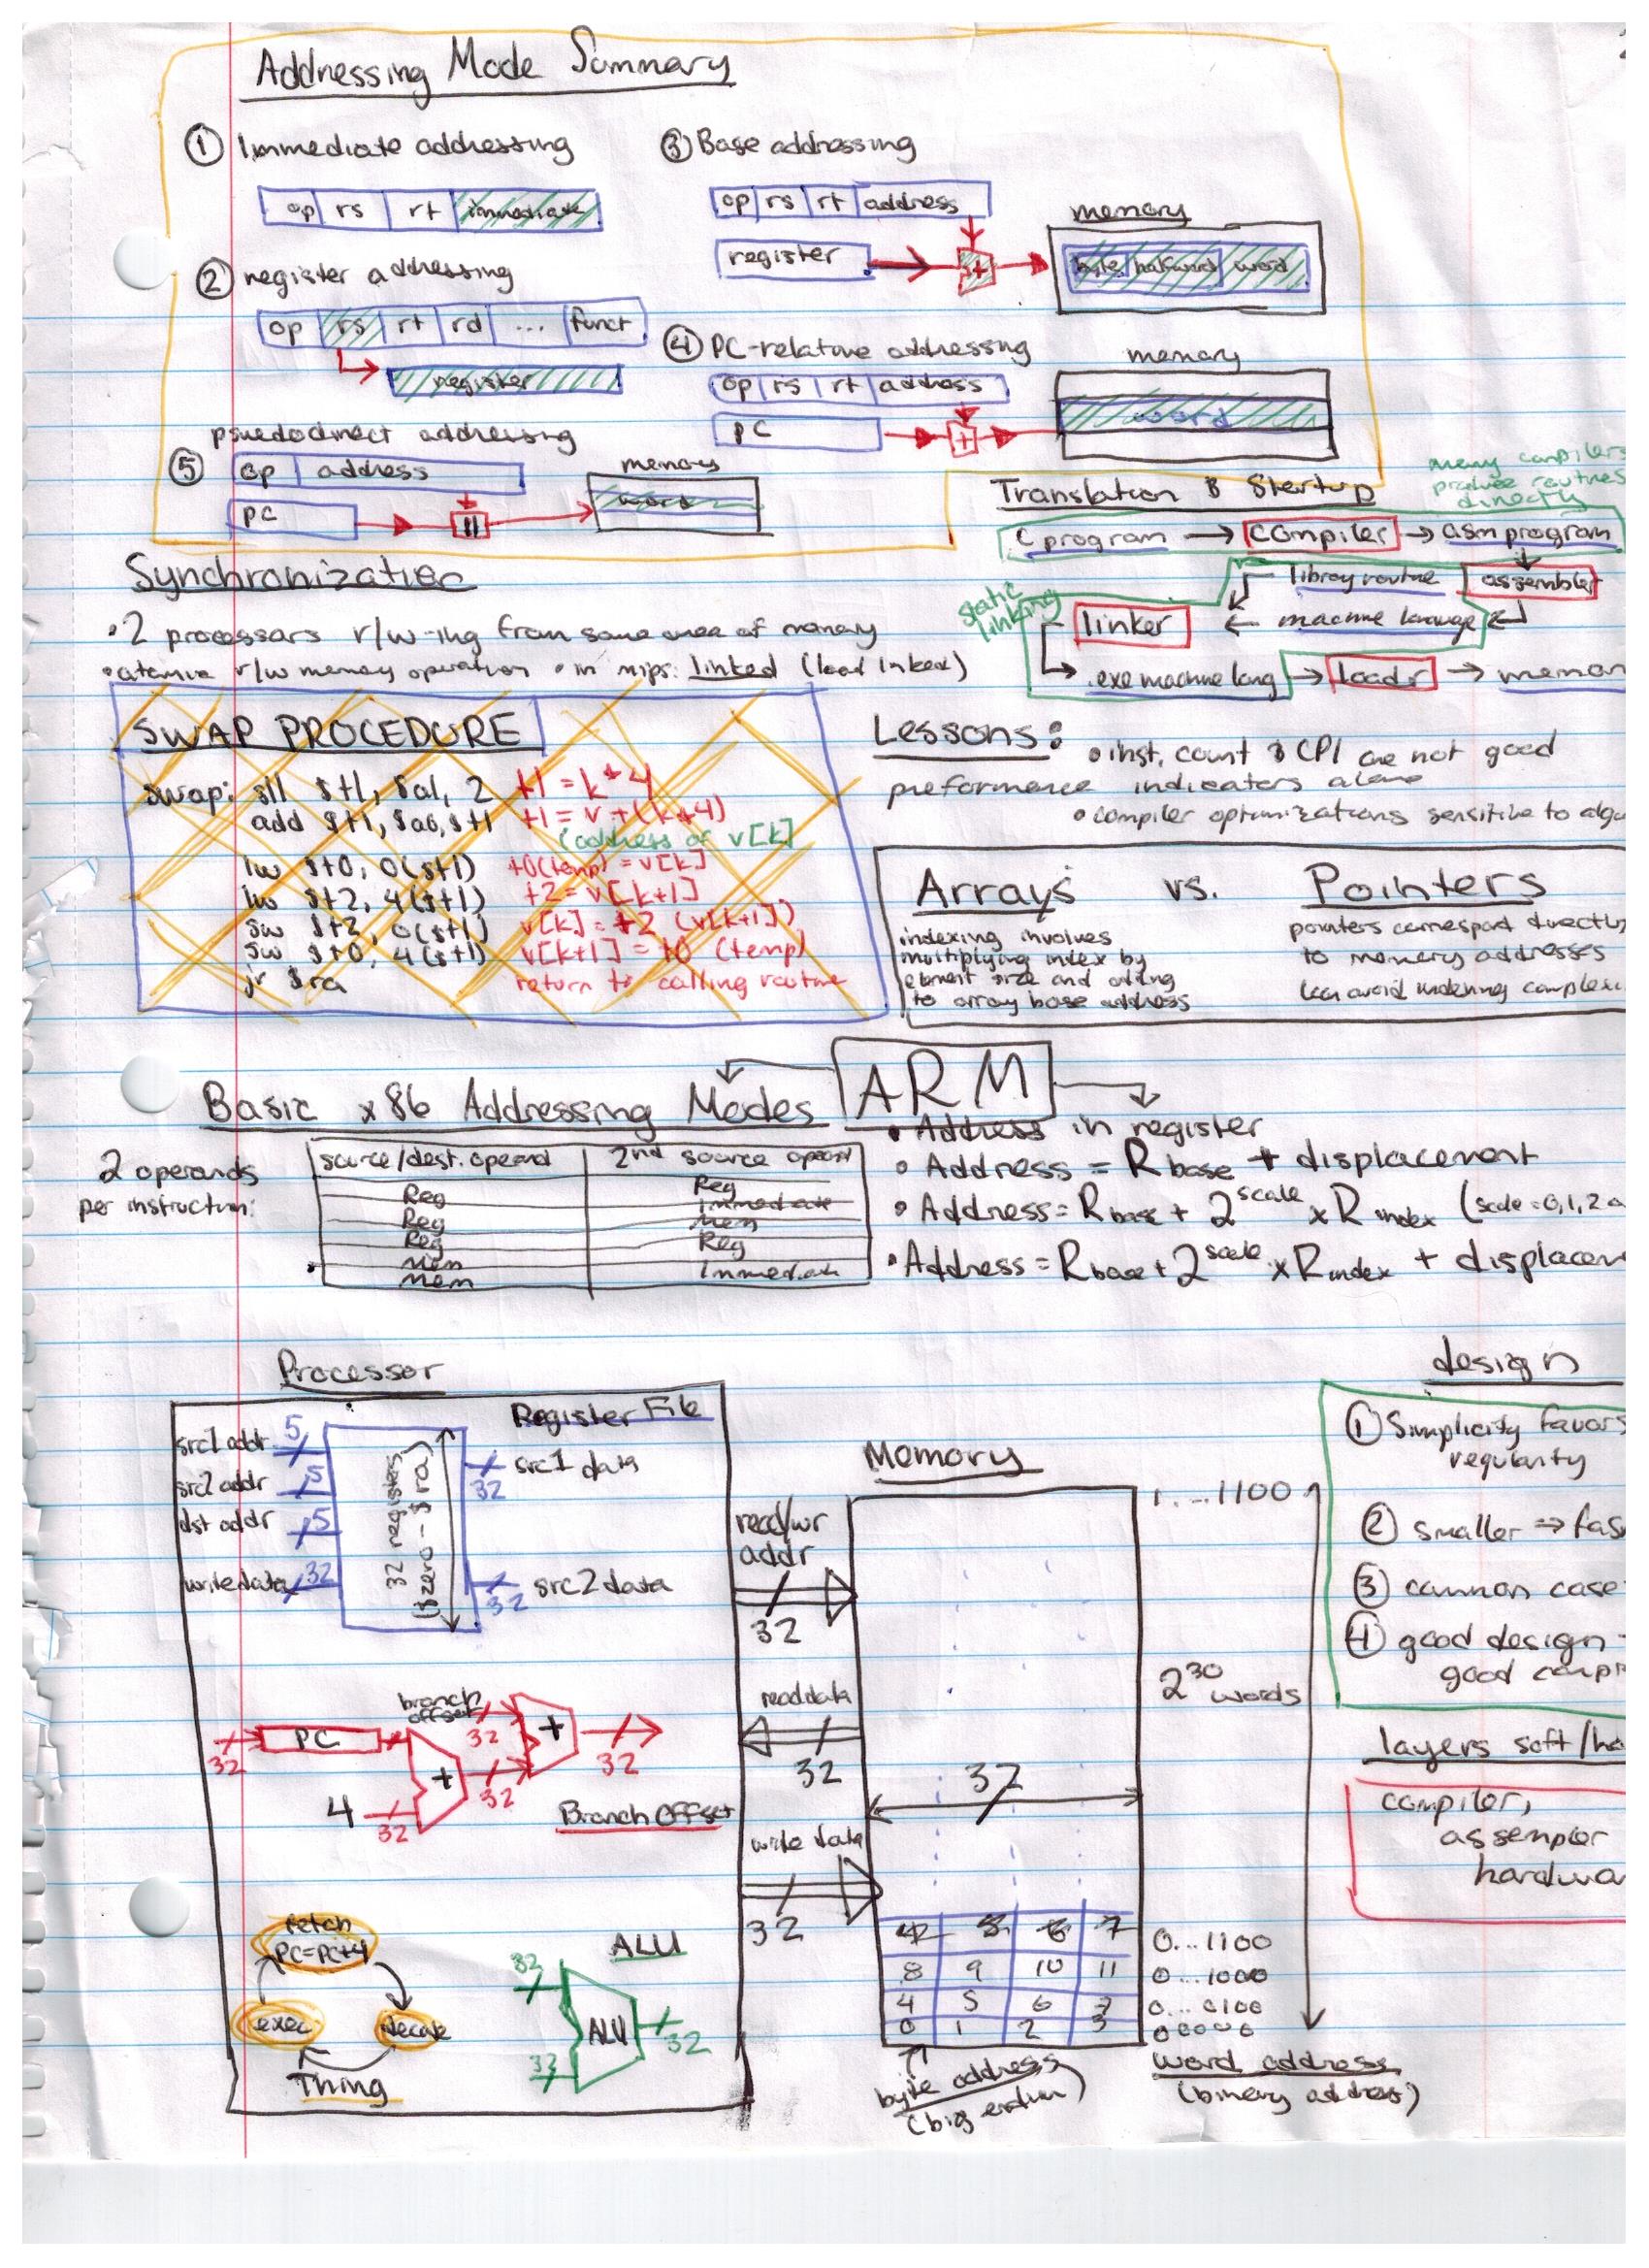 Addressing Mode Summary
① Immediate addressing
op rs rt immediate
② register addressing
op rs rt rd ... funct
register
③ Base addressing
op rs rt address
register
+
memory
byte halfword word
④ PC-relative addressing
op rs rt address
PC
+
memory
word
psuedodirect addressing
⑤ op address
PC
||
memory
word
Translation & Startup
many compilers
produce routines
directly
C program → compiler → asm program
library routine assembler
static
linking
linker ← machine language
.exe machine lang → loadr → memor
Synchronization
• 2 processors r/w-ing from same area of memory
• atomic r/w memory operation • in mips: linked (load linked)
SWAP PROCEDURE
swap: sll $t1, $a1, 2 t1 = k*4
add $t1, $a0, $t1 t1 = v + (k*4)
(address of v[k]
lw $t0, 0($t1) t0(temp) = v[k]
lw $t2, 4($t1) t2 = v[k+1]
sw $t2, 0($t1) v[k] = t2 (v[k+1])
sw $t0, 4($t1) v[k+1] = t0 (temp)
jr $ra return to calling routine
Lessons:
• inst. count & CPI are not good
preformence indicators alone
• compiler optimizations sensitive to algo
Arrays vs. Pointers
indexing involves
multiplying index by
element size and adding
to array base address
pointers correspond directly
to memory addresses
can avoid indexing complexi
ARM
Basic x86 Addressing Modes
2 operands
per instruction:
source/dest. operand 2nd source operand
Reg Reg
Reg Immediate
Reg Mem
Mem Reg
Mem Immediate
• Address in register
• Address = Rbase + displacement
• Address = Rbase + 2^scale x Rindex (scale = 0, 1, 2 o
• Address = Rbase + 2^scale x Rindex + displacem
Processor
Register File
src1 addr 5
src2 addr 5
dst addr 5
write data 32
32 registers
($zero - $ra)
src1 data
32
src2 data
32
PC
32
4
32
+
32
branch
offset
32
+
32
Branch Offset
fetch
PC=PC+4
exec
decode
Thing
ALU
32
32
ALU
32
read/wr
addr
32
read data
32
write data
32
Memory
1....1100
2^30
words
32
8 9 10 11
4 5 6 7
0 1 2 3
0...1100
0...1000
0...0100
00000
byte address
(big endian)
word address
(binary address)
design
① Simplicity favors
regularity
② smaller ⇒ fas
③ common case
④ good design
good comp
layers soft/ha
compiler,
assempler
hardwa